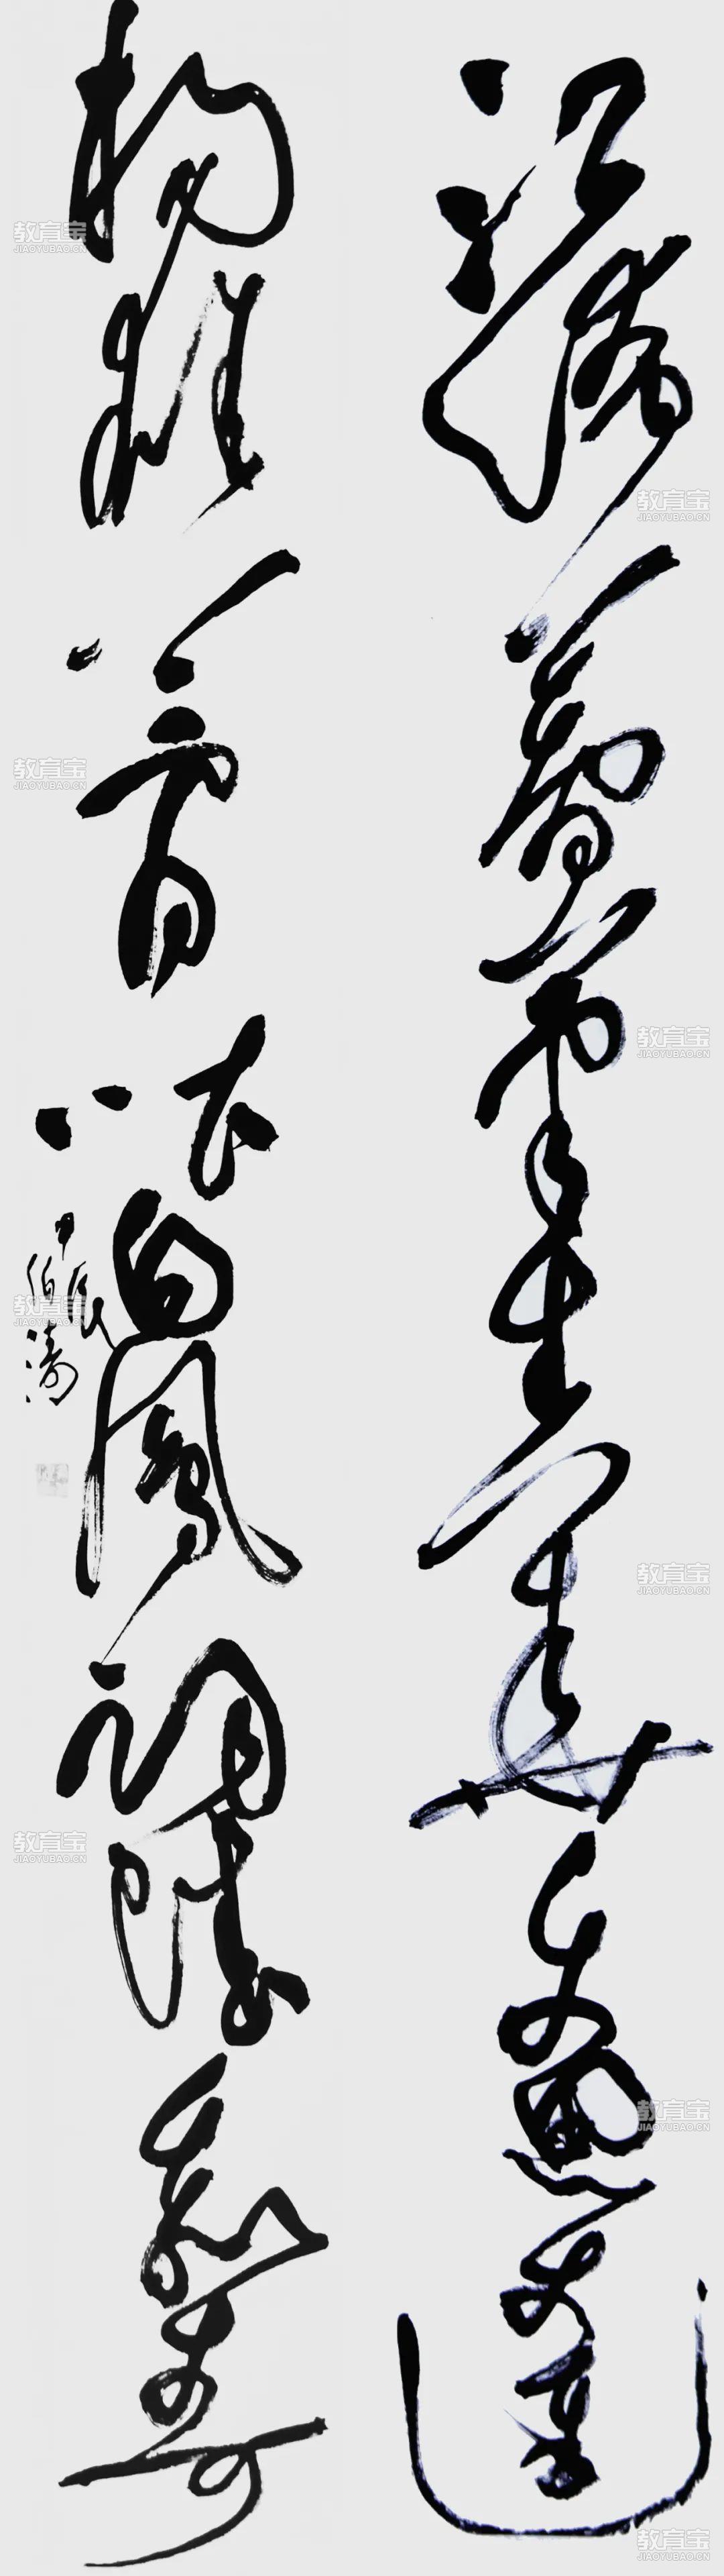 江淹夢筆生花文思大進
揚雄夢吐白鳳詞賦愈奇
甲辰
伯濤
教育宝
JIAOYUBAO.CN
教育宝
JIAOYUBAO.CN
教育宝
JIAOYUBAO.CN
教育宝
JIAOYUBAO.CN
教育宝
JIAOYUBAO.CN
教育宝
JIAOYUBAO.CN
教育宝
JIAOYUBAO.CN
教育宝
JIAOYUBAO.CN
教育宝
JIAOYUBAO.CN